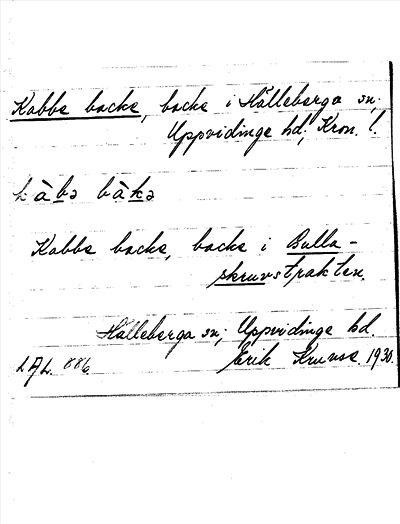 Kabbe backe, backe i Hälleberga sn;
Uppvidinge hd; Kron. l.
kàbə bàkə
Kabbe backe, backe i Bulla-
skruvstrakten.
Hälleberga sn; Uppvidinge hd.
LAL. 886. Erik Kruuse 1930.